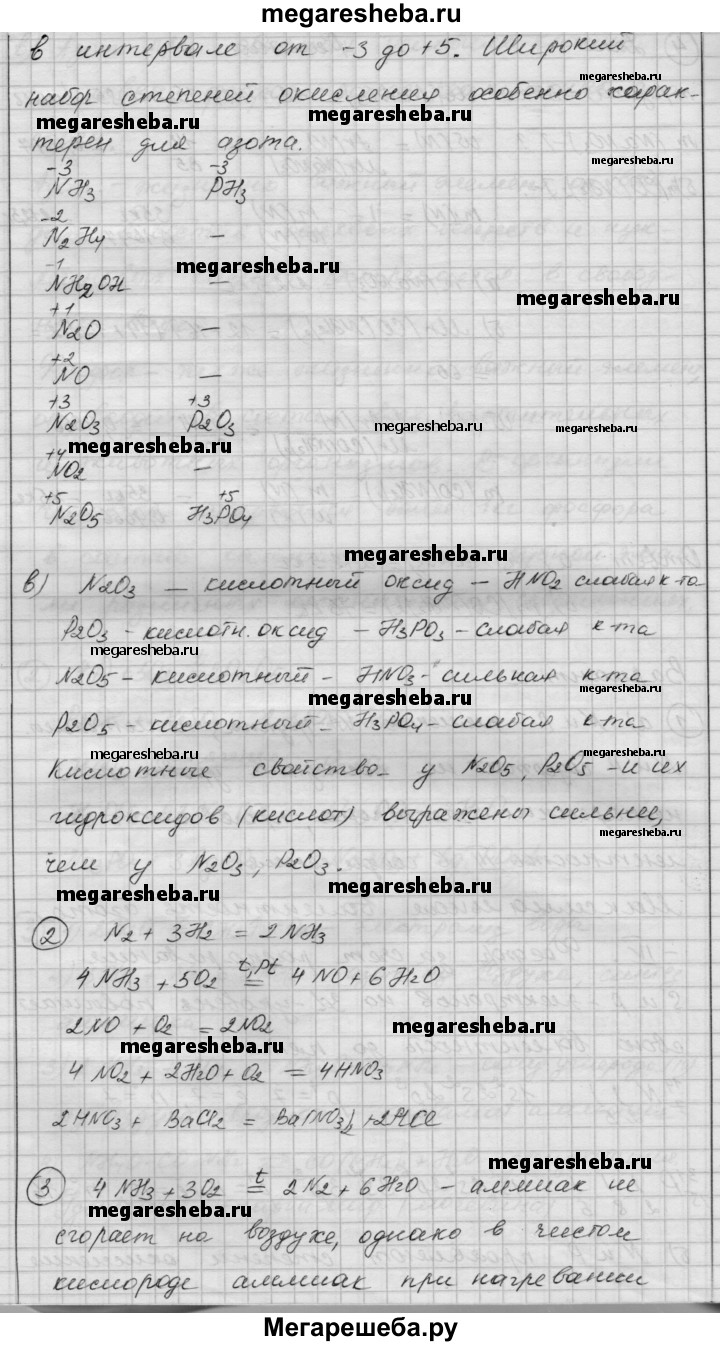 megaresheba.ru
в интервале от -3 до +5. Широкий
megaresheba.ru
набор степеней окисления особенно харак-
megaresheba.ru megaresheba.ru
терен для азота.
megaresheba.ru
-3 -3
NH3 PH3
-2
N2H4 —
-1 megaresheba.ru
NH2OH —
megaresheba.ru
+1
N2O —
+2
NO —
+3 +3
N2O3 P2O3
megaresheba.ru
megaresheba.ru
+4
NO2 —
+5 +5
N2O5 H3PO4
megaresheba.ru
в) N2O3 — кислотный оксид — HNO2 слабая к-та
P2O3 - кислотн. оксид — H3PO3 - слабая к-та
megaresheba.ru
N2O5 - кислотный - HNO3 - сильная к-та
megaresheba.ru
megaresheba.ru
P2O5 - кислотный - H3PO4 - слабая к-та
megaresheba.ru
megaresheba.ru
Кислотные свойства у N2O5, P2O5 - и их
гидроксидов (кислот) выражены сильнее,
megaresheba.ru
чем у N2O3, P2O3.
megaresheba.ru
2 N2 + 3H2 = 2NH3
t, Pt
4NH3 + 5O2 = 4NO + 6H2O
2NO + O2 = 2NO2
megaresheba.ru
megaresheba.ru
4NO2 + 2H2O + O2 = 4HNO3
2HNO3 + BaCl2 = Ba(NO3)2 + 2HCl
megaresheba.ru
t
3 4NH3 + 3O2 = 2N2 + 6H2O - аммиак не
megaresheba.ru
сгорает на воздухе, однако в чистом
кислороде аммиак при нагревании
Мегарешеба.ру